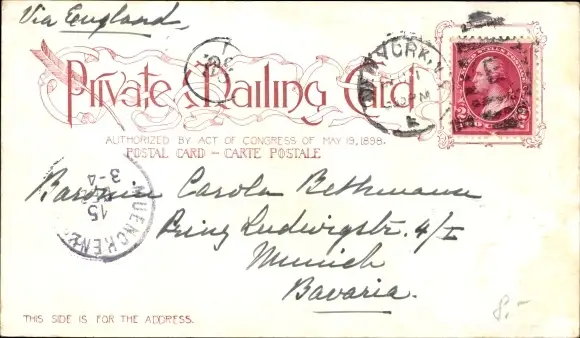 Via England
Private Mailing Card
AUTHORIZED BY ACT OF CONGRESS OF MAY 19, 1898.
POSTAL CARD – CARTE POSTALE
NEW YORK, N.Y.
MUENCHEN
15
3-4
Baronin Carola Bethmann
Prinz Ludwigstr. 4/I
Munich
Bavaria.
8.-
THIS SIDE IS FOR THE ADDRESS.